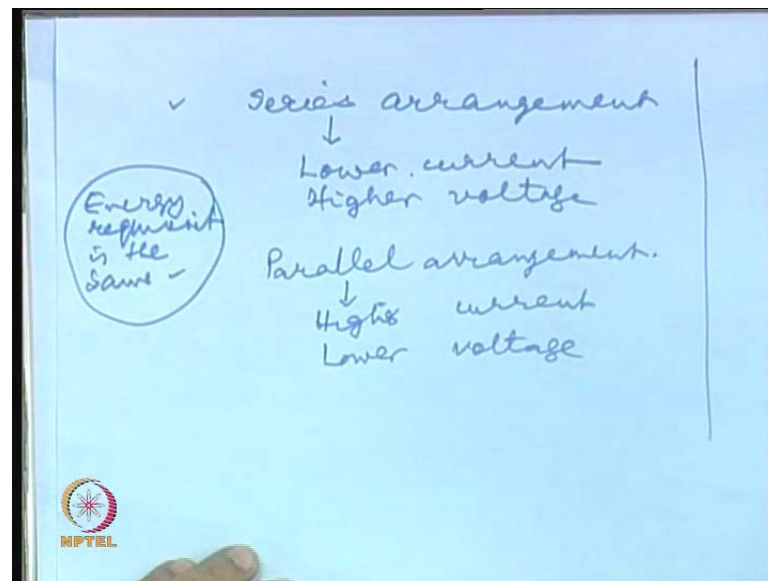 ✓ Series arrangement
↓
Lower current
Higher voltage
Energy
is the
same -
Parallel arrangement.
↓
current
Lower voltage
NPTEL